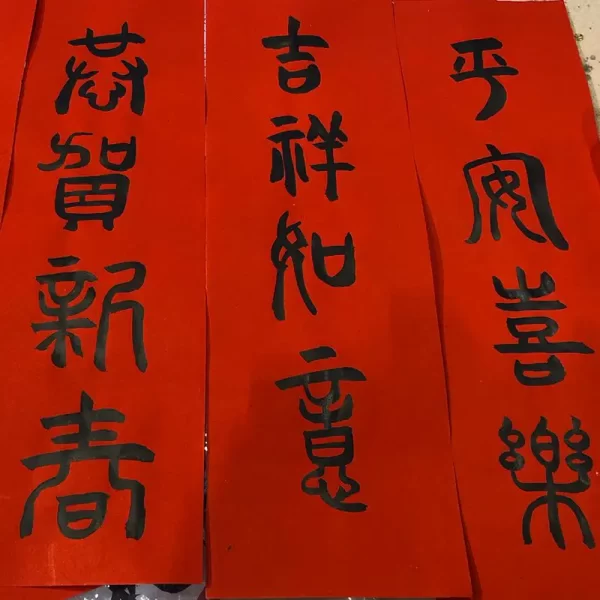 恭賀新春
吉祥如意
平安喜樂